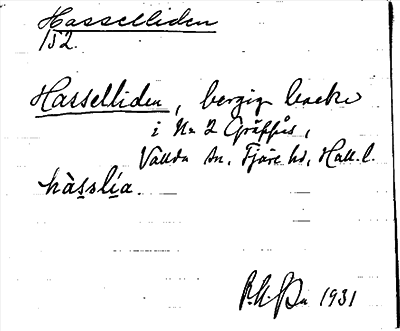 Hasselliden
152.
Hasselliden, bergig backe
i No 2
Vallda sn, Fjäre hd, Hall. l.
hàs̱slía
1931